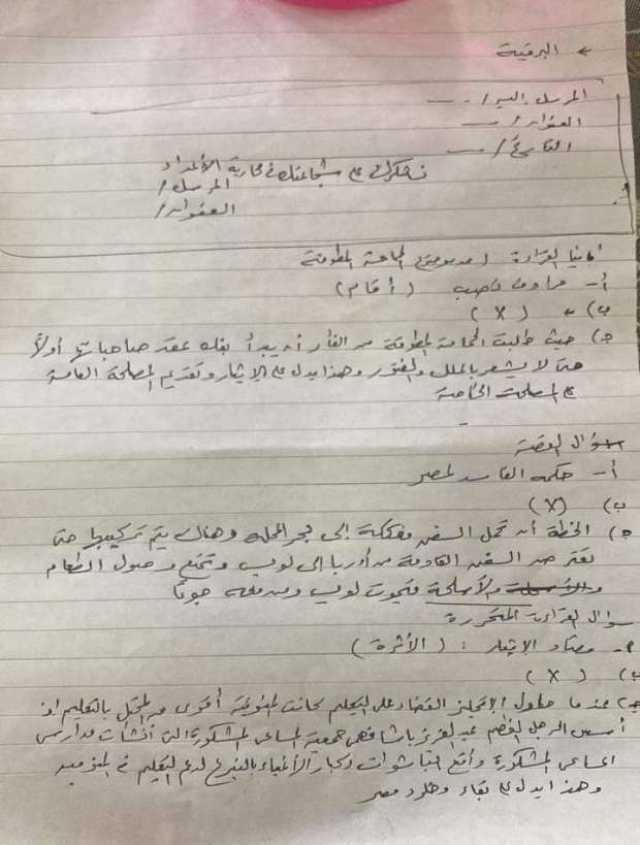 ← البرقية
المرسل إليه /
العنوان /
التاريخ /
نشكرك على شجاعتك في محاربة الأعداء
المرسل /
العنوان /
ثانيا القراءة ( الحمامة المطوقة
أ - مرادف نصب ( أقام )
ب) ( X )
ج) حيث طالبت الحمامة المطوقة من الفأر أن يبدأ بفك عقد صاحباتها أولاً
حتى لا يشعر بالملل والفتور وهذا يدل على الإيثار وتقديم المصلحة العامة
على المصلحة الخاصة
سؤال القصة
أ - حكمه الفاسد لمصر
ب) (X)
ج) الخطة أن تحمل السفن مفككة إلى بحر المحلة وهناك يتم تركيبها حتى
السفن القادمة من أوربا إلى لويس وتمنع وصول الطعام
والأسلحة فيموت لويس ومن معه جوعا
سؤال القراءة المتحررة
أ - مضاد الإيثار : ( الأثرة )
ب) ( X )
ج) عندما حاول الإنجليز القضاء على التعليم كانت المنوفية أقوى من المحتل بالتعليم إذ
أسس الرجل العظيم عبد العزيز باشا فهمي جمعية المساعي المشكورة التي أنشأت مدارس
المساعي المشكورة وأقنع الباشوات وكبار الأغنياء بالتبرع لدعم التعليم في المنوفية
وهذا يدل على بقاء وخلود مصر